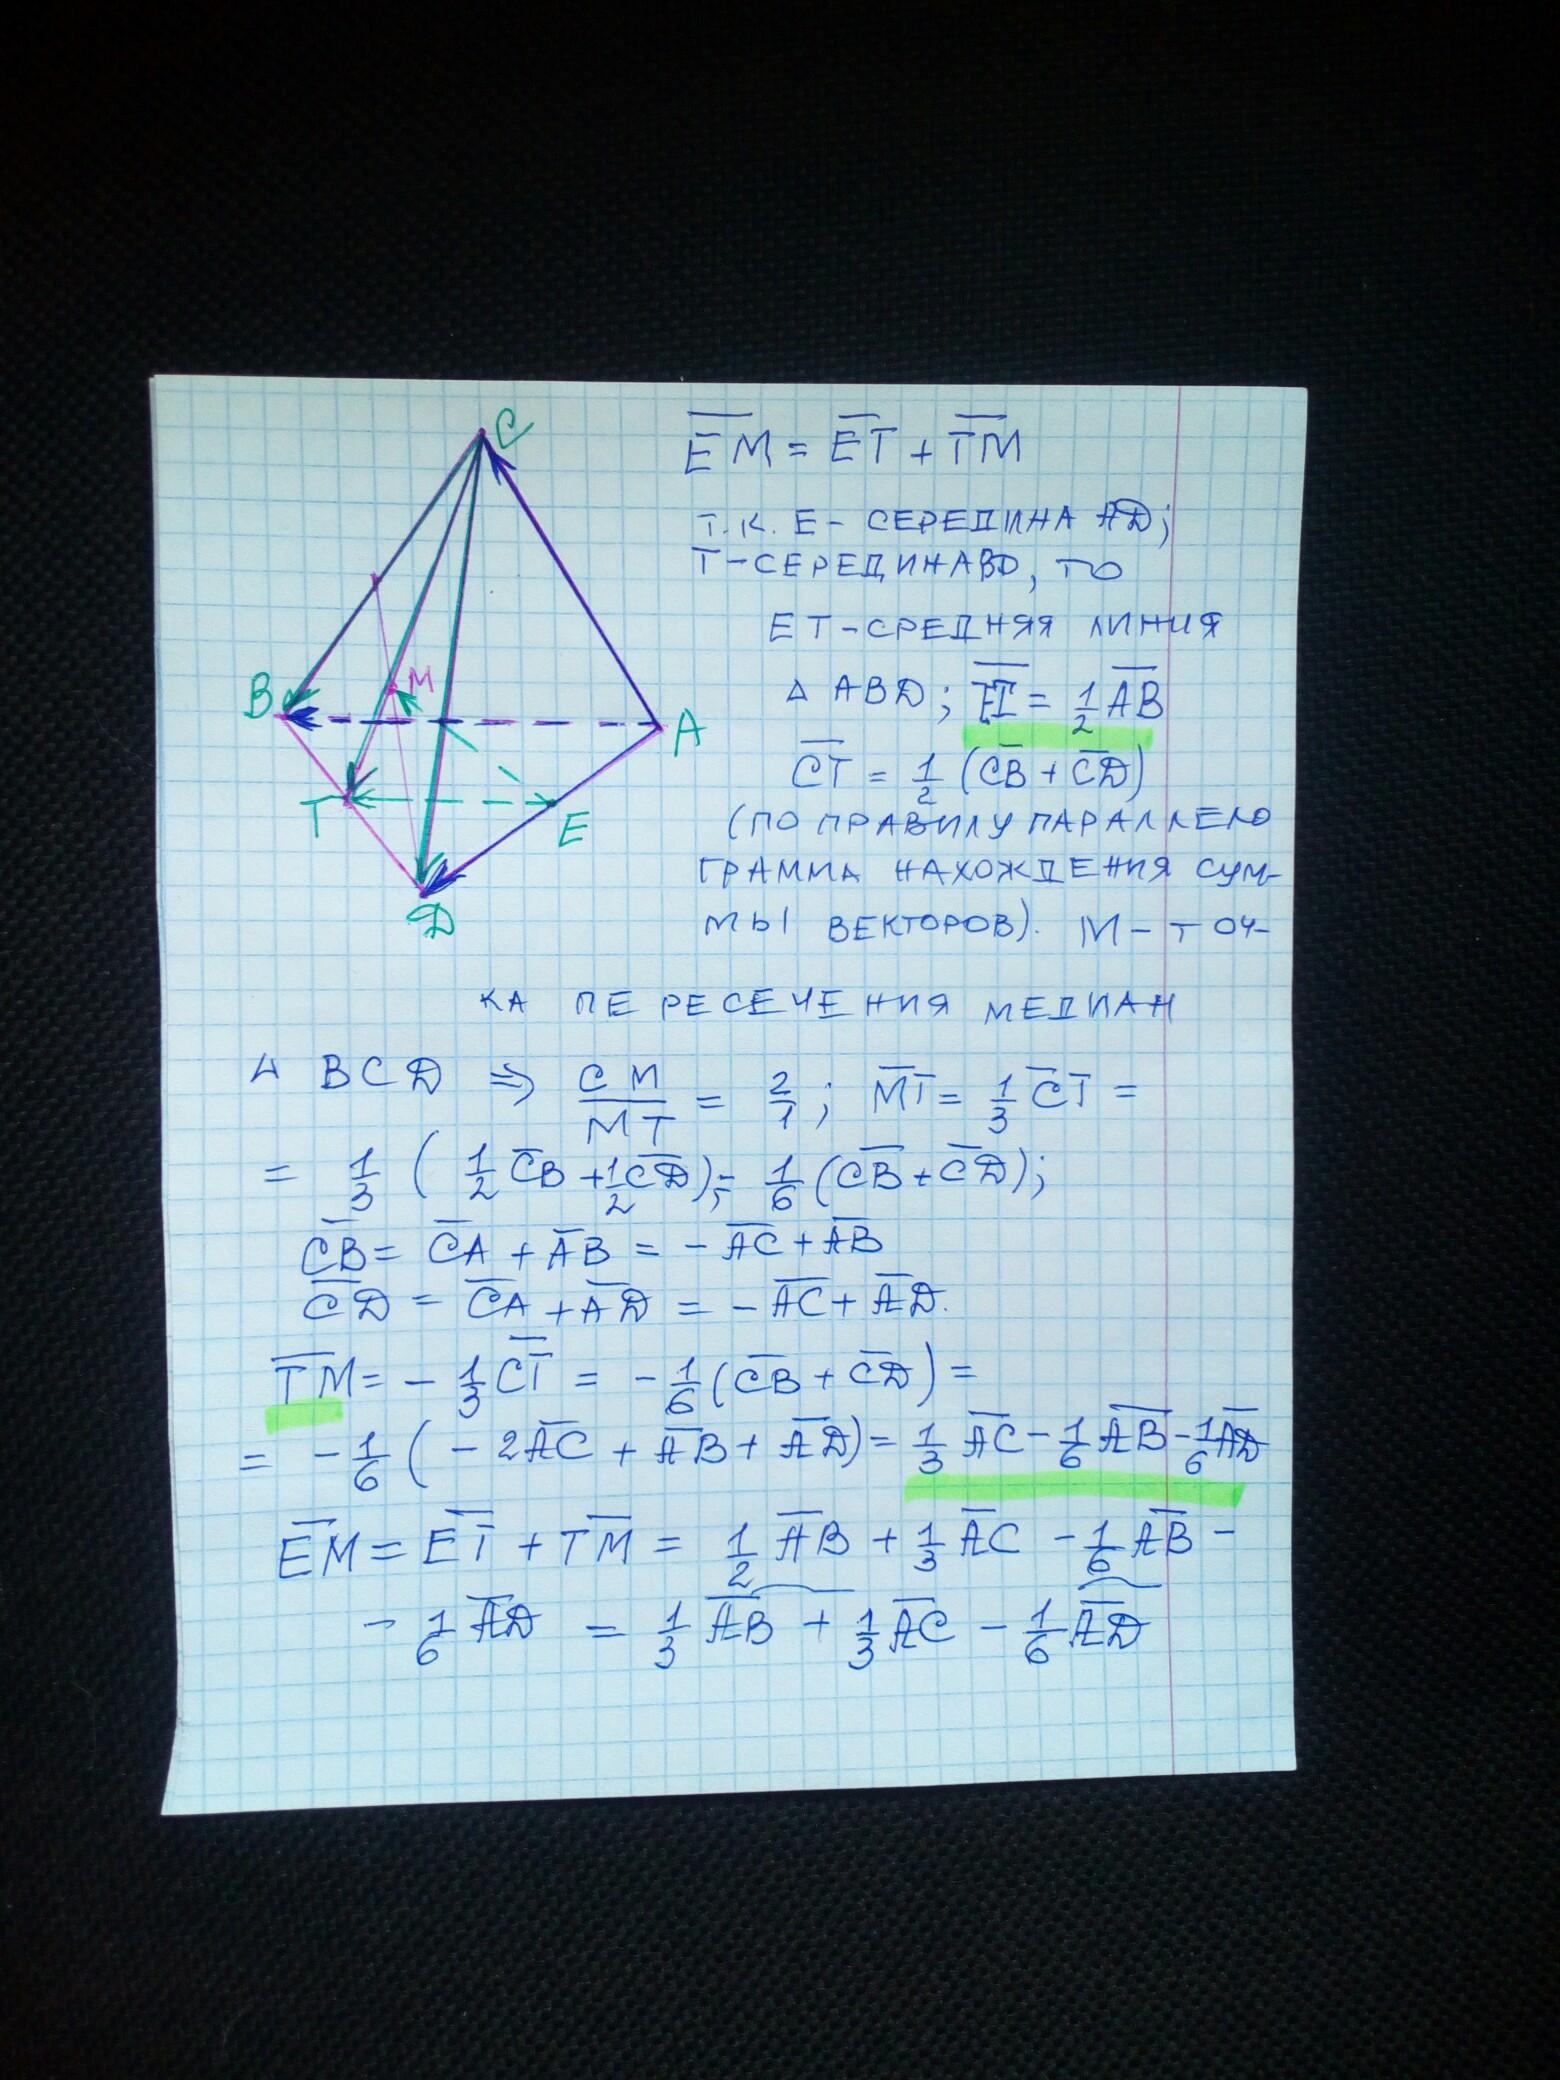 C
B
M
A
T
E
D
EM = ET + TM
Т.К. Е - СЕРЕДИНА AD;
Т - СЕРЕДИНА BD, ТО
ЕТ - СРЕДНЯЯ ЛИНИЯ
Δ ABD; ET = 1/2 AB
CT = 1/2 (CB + CD)
(ПО ПРАВИЛУ ПАРАЛЛЕЛО
ГРАММА НАХОЖДЕНИЯ СУМ-
МЫ ВЕКТОРОВ). М - ТОЧ-
КА ПЕРЕСЕЧЕНИЯ МЕДИАН
Δ BCD ⇒ CM/MT = 2/1; MT = 1/3 CT =
= 1/3 (1/2 CB + 1/2 CD) = 1/6 (CB + CD);
CB = CA + AB = - AC + AB
CD = CA + AD = - AC + AD.
TM = - 1/3 CT = - 1/6 (CB + CD) =
= - 1/6 (- 2AC + AB + AD) = 1/3 AC - 1/6 AB - 1/6 AD
EM = ET + TM = 1/2 AB + 1/3 AC - 1/6 AB -
- 1/6 AD = 1/3 AB + 1/3 AC - 1/6 AD